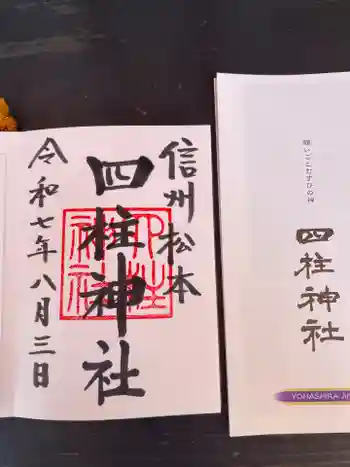 信州松本
四柱神社
令和七年八月三日
四柱神社
願いごとむすびの神
四柱神社